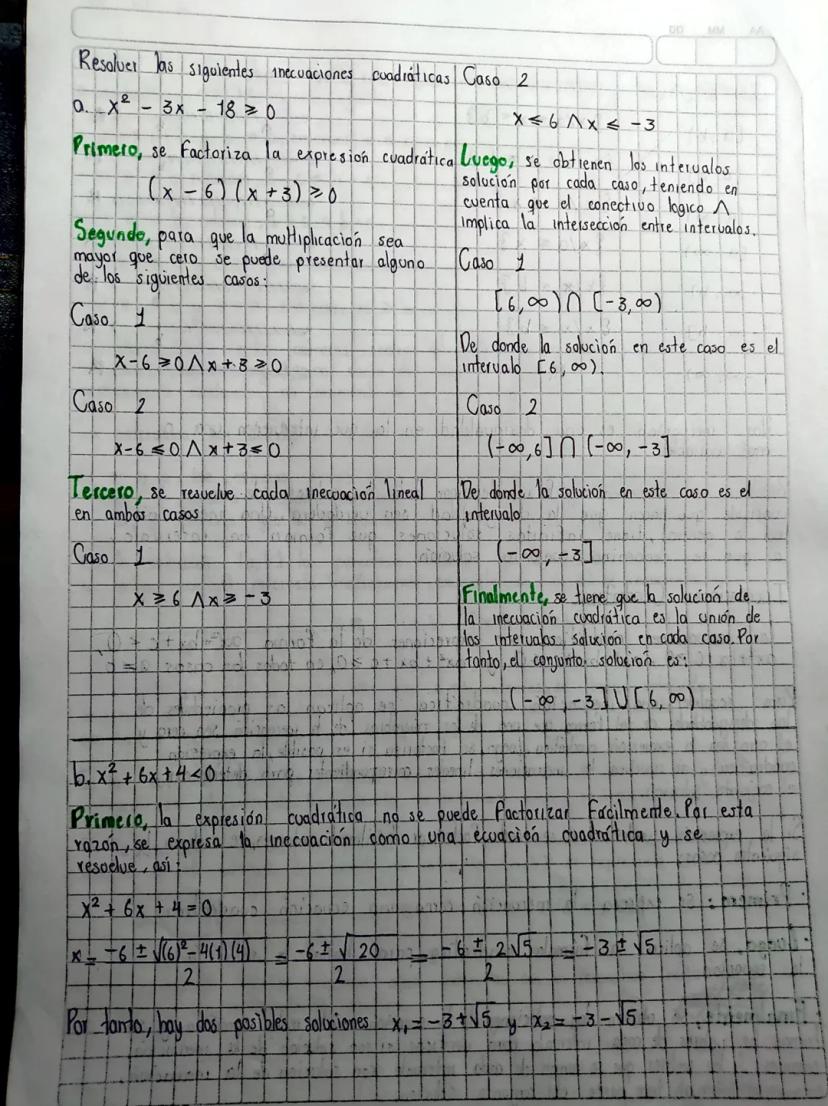 DD MM AA
Resolver las siguientes inecuaciones cuadráticas
a. x² - 3x - 18 ≥ 0
Primero, se factoriza la expresión cuadrática
(x - 6) (x + 3) ≥ 0
Segundo, para que la multiplicación sea
mayor que cero se puede presentar alguno
de los siguientes casos:
Caso 1
x - 6 ≥ 0 ∧ x + 3 ≥ 0
Caso 2
x - 6 ≤ 0 ∧ x + 3 ≤ 0
Tercero, se resuelve cada inecuación lineal
en ambos casos
Caso 1
x ≥ 6 ∧ x ≥ -3
Caso 2
x ≤ 6 ∧ x ≤ -3
Luego, se obtienen los intervalos
solución por cada caso, teniendo en
cuenta que el conectivo logico ∧
implica la intersección entre intervalos.
Caso 1
[6, ∞) ∩ [-3, ∞)
De donde la solución en este caso es el
intervalo [6, ∞).
Caso 2
(-∞, 6] ∩ (-∞, -3]
De donde la solución en este caso es el
intervalo
(-∞, -3]
Finalmente, se tiene que la solución de
la inecuación cuadrática es la unión de
los intervalos solución en cada caso. Por
tanto, el conjunto solución es:
(-∞, -3] ∪ [6, ∞)
b. x² + 6x + 4 < 0
Primero, la expresión cuadrática no se puede factorizar fácilmente. Por esta
razón, se expresa la inecuación como una ecuación cuadrática y se
resuelve, así:
x² + 6x + 4 = 0
x = -6 ± √(6)² - 4(1)(4) / 2 = -6 ± √20 / 2 = -6 ± 2√5 / 2 = -3 ± √5
Por tanto, hay dos posibles soluciones x₁ = -3 + √5 y x₂ = -3 - √5